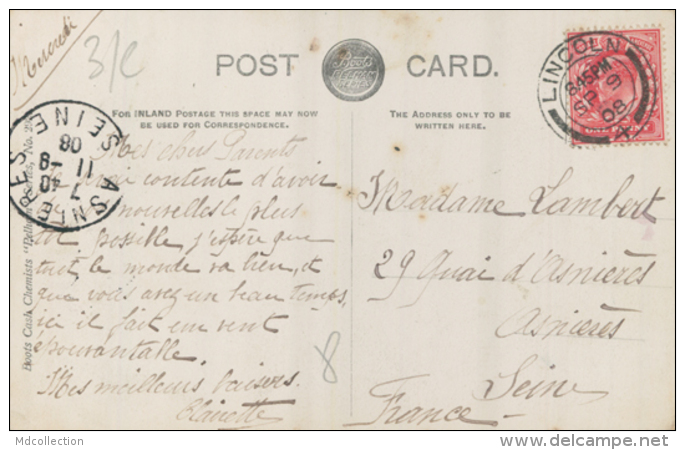 Mercredi
3/c
POST CARD.
Boots CASH
FOR INLAND POSTAGE THIS SPACE MAY NOW
BE USED FOR CORRESPONDENCE.
THE ADDRESS ONLY TO BE
WRITTEN HERE.
LINCOLN
8.45PM
SP 9
08
4
ASNIERES SEINE
7 40
11 -9
08
Boots Cash Chemists "Pelham" Series, No.
Mes chers Parents
contente d'avoir
nouvelles le plus
tôt possible, j'espère que
tout le monde va bien, et
que vous avez un beau temps,
ici il fait un vent
épouvantable
Mes meilleurs baisers.
Clairette
8
Madame Lambert
29 Quai d'Asnières
Asnières
Seine
France
Mdcollection
www.delcampe.net